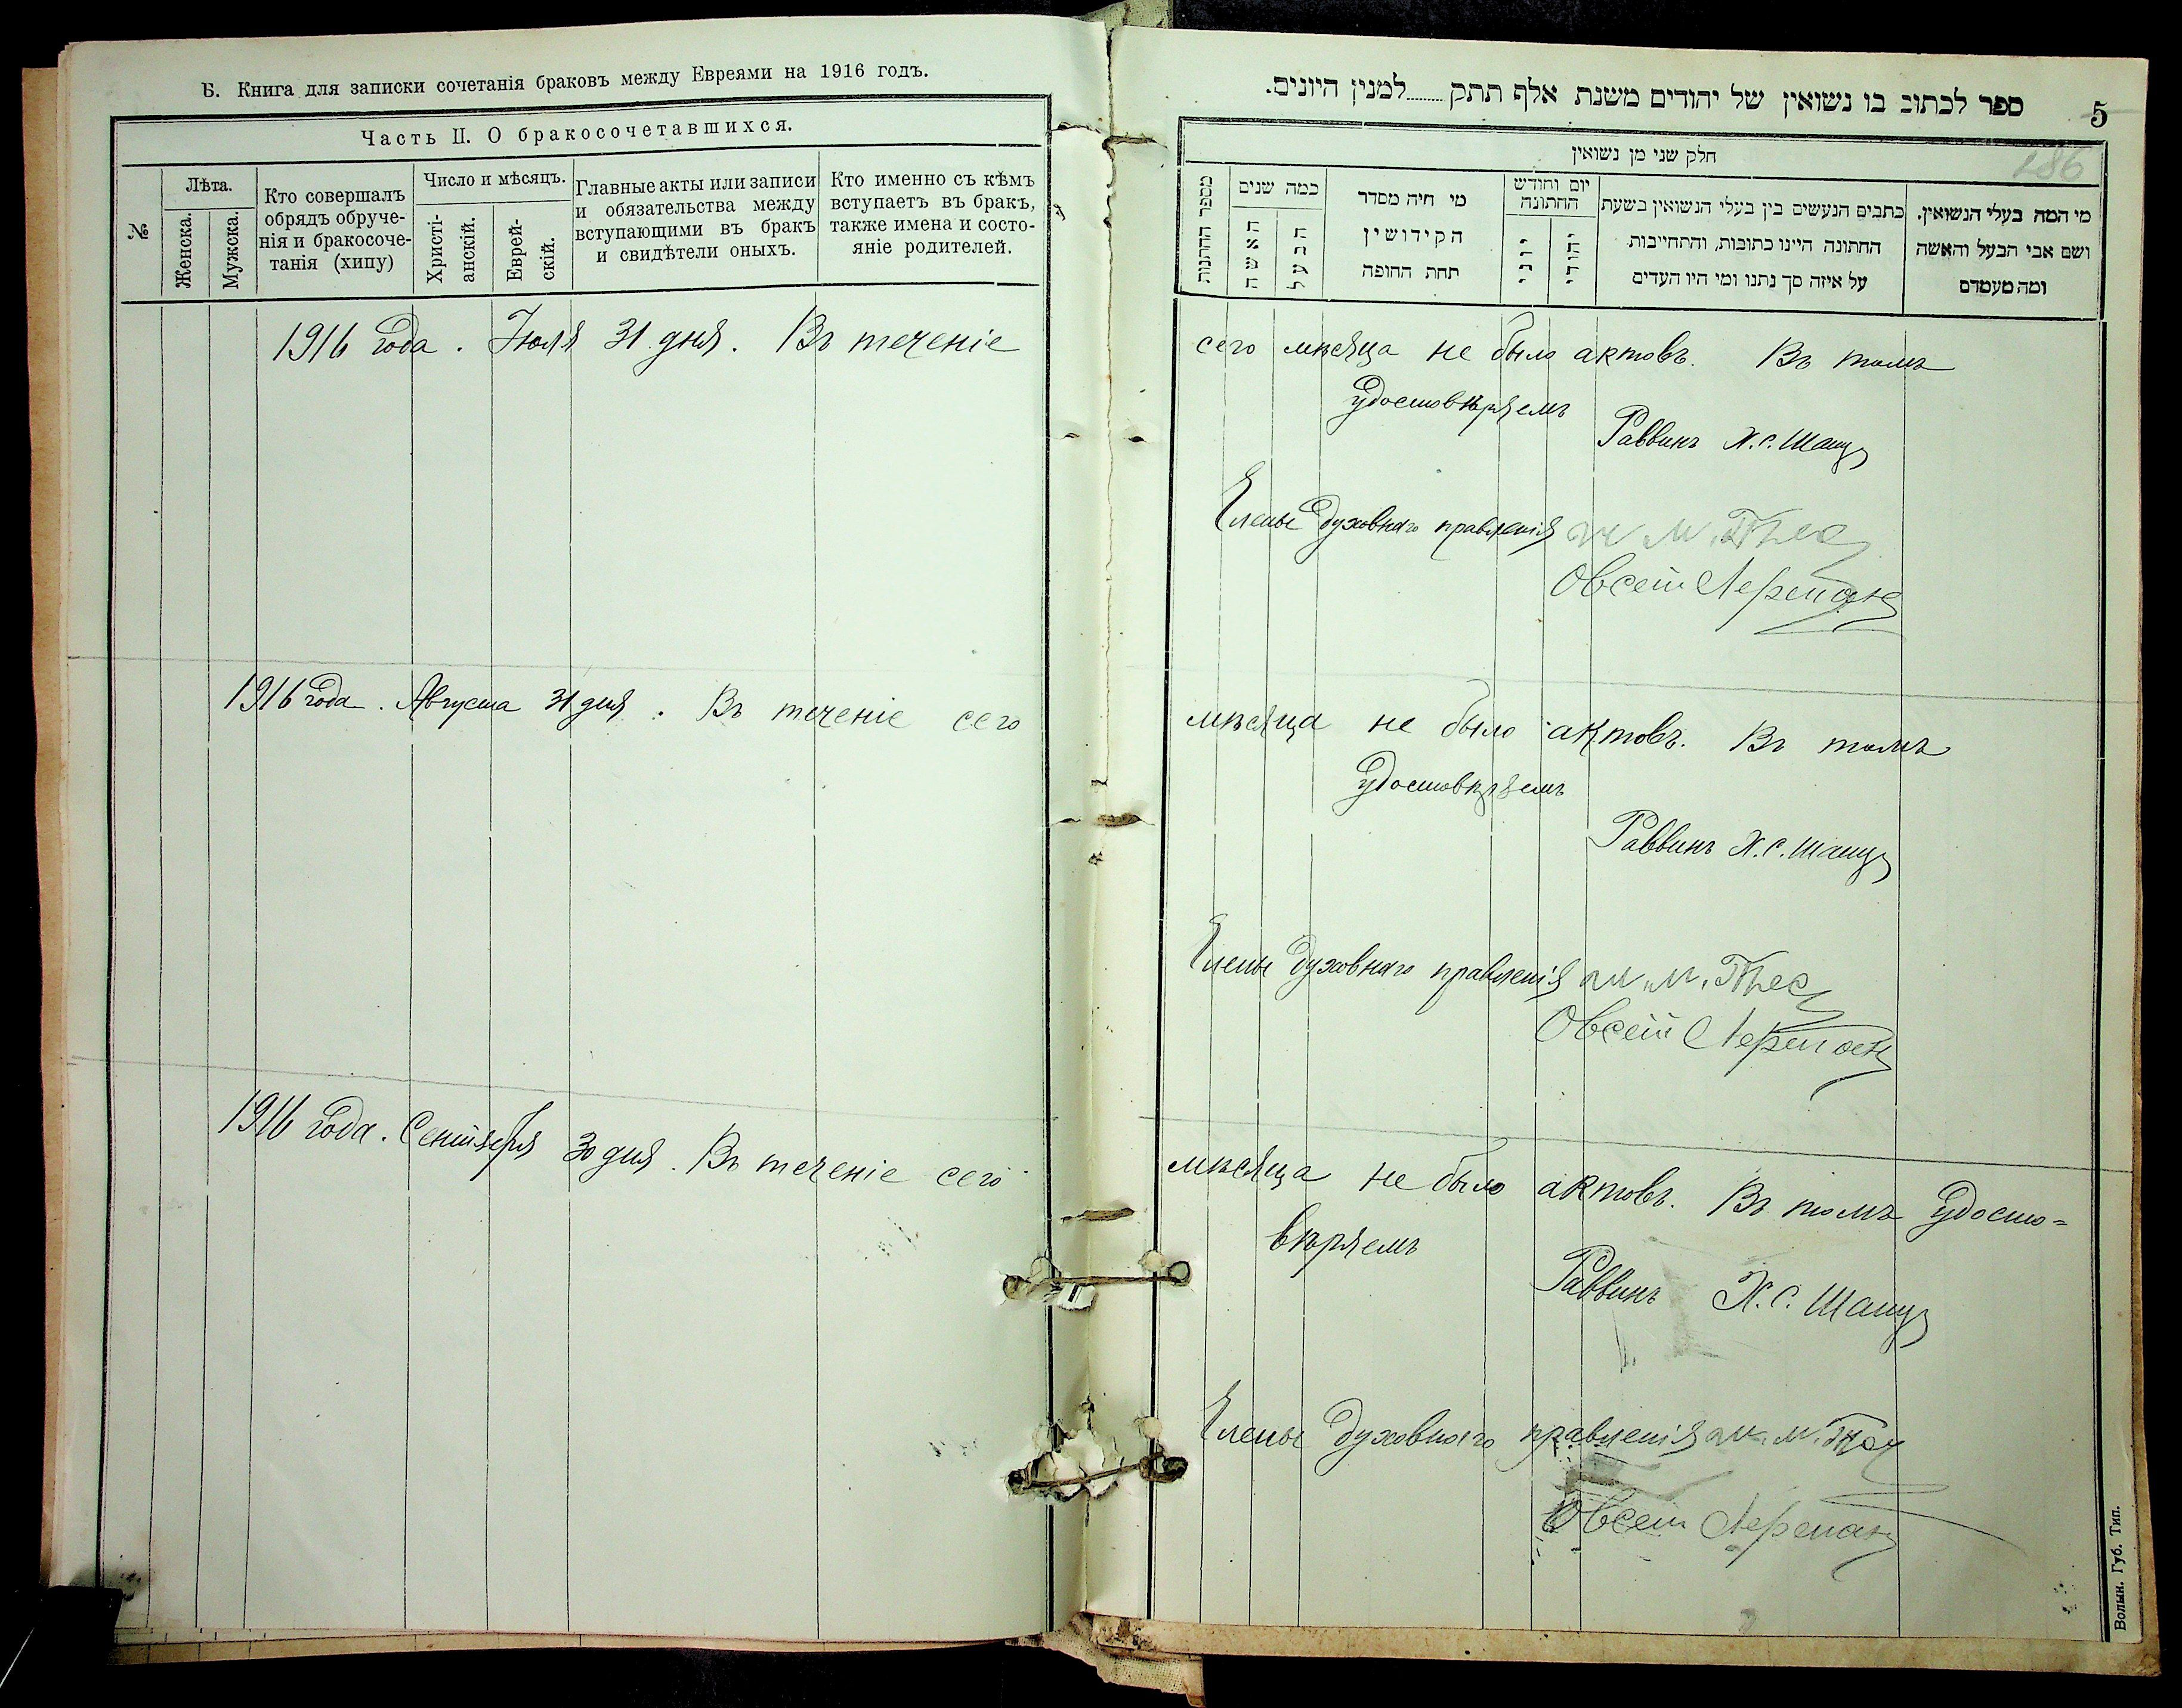 Б. Книга для записки сочетанія браковъ между Евреями на 1916 годъ.
Часть II. О бракосочетавшихся.
№
Лѣта.
Женска.
Мужска.
Кто совершалъ
обрядъ обруче-
нія и бракосоче-
танія (хипу)
Число и мѣсяцъ.
Христі-
анскій.
Еврей-
скій.
Главные акты или записи
и обязательства между
вступающими въ бракъ
и свидѣтели оныхъ.
Кто именно съ кѣмъ
вступаетъ въ бракъ,
также имена и состо-
яніе родителей.
1916 года. Іюля 31 дня. Въ теченіе
1916 года. Августа 31 дня. Въ теченіе сего
1916 года. Сентября 30 дня. Въ теченіе сего
ספר לכתוב בו נשואין של יהודים משנת אלף תתק........למנין היונים.
5
186
חלק שני מן נשואין
מי המה בעלי הנשואין.
ושם אבי הבעל והאשה
ומה מעמדם
כתבים הנעשים בין בעלי הנשואין בשעת
החתונה היינו כתובות, והתחייבות
על איזה סך נתנו ומי היו העדים
יום וחודש
החתונה
יהודי
יוני
מי חיה מסדר
הקידושין
תחת החופה
כמה שנים
הבעל
האשה
מספר החתונות
сего мѣсяца не было актовъ. Въ томъ
удостовѣряемъ
Раввинъ Х. С. Шацъ
Члены духовнаго правленія
Овсей
мѣсяца не было актовъ. Въ томъ
удостовѣряемъ
Раввинъ Х. С. Шацъ
Члены духовнаго правленія
Овсей
мѣсяца не было актовъ. Въ томъ удосто=
вѣряемъ
Раввинъ Х. С. Шацъ
Члены духовнаго правленія
Овсей
Волын. Губ. Тип.